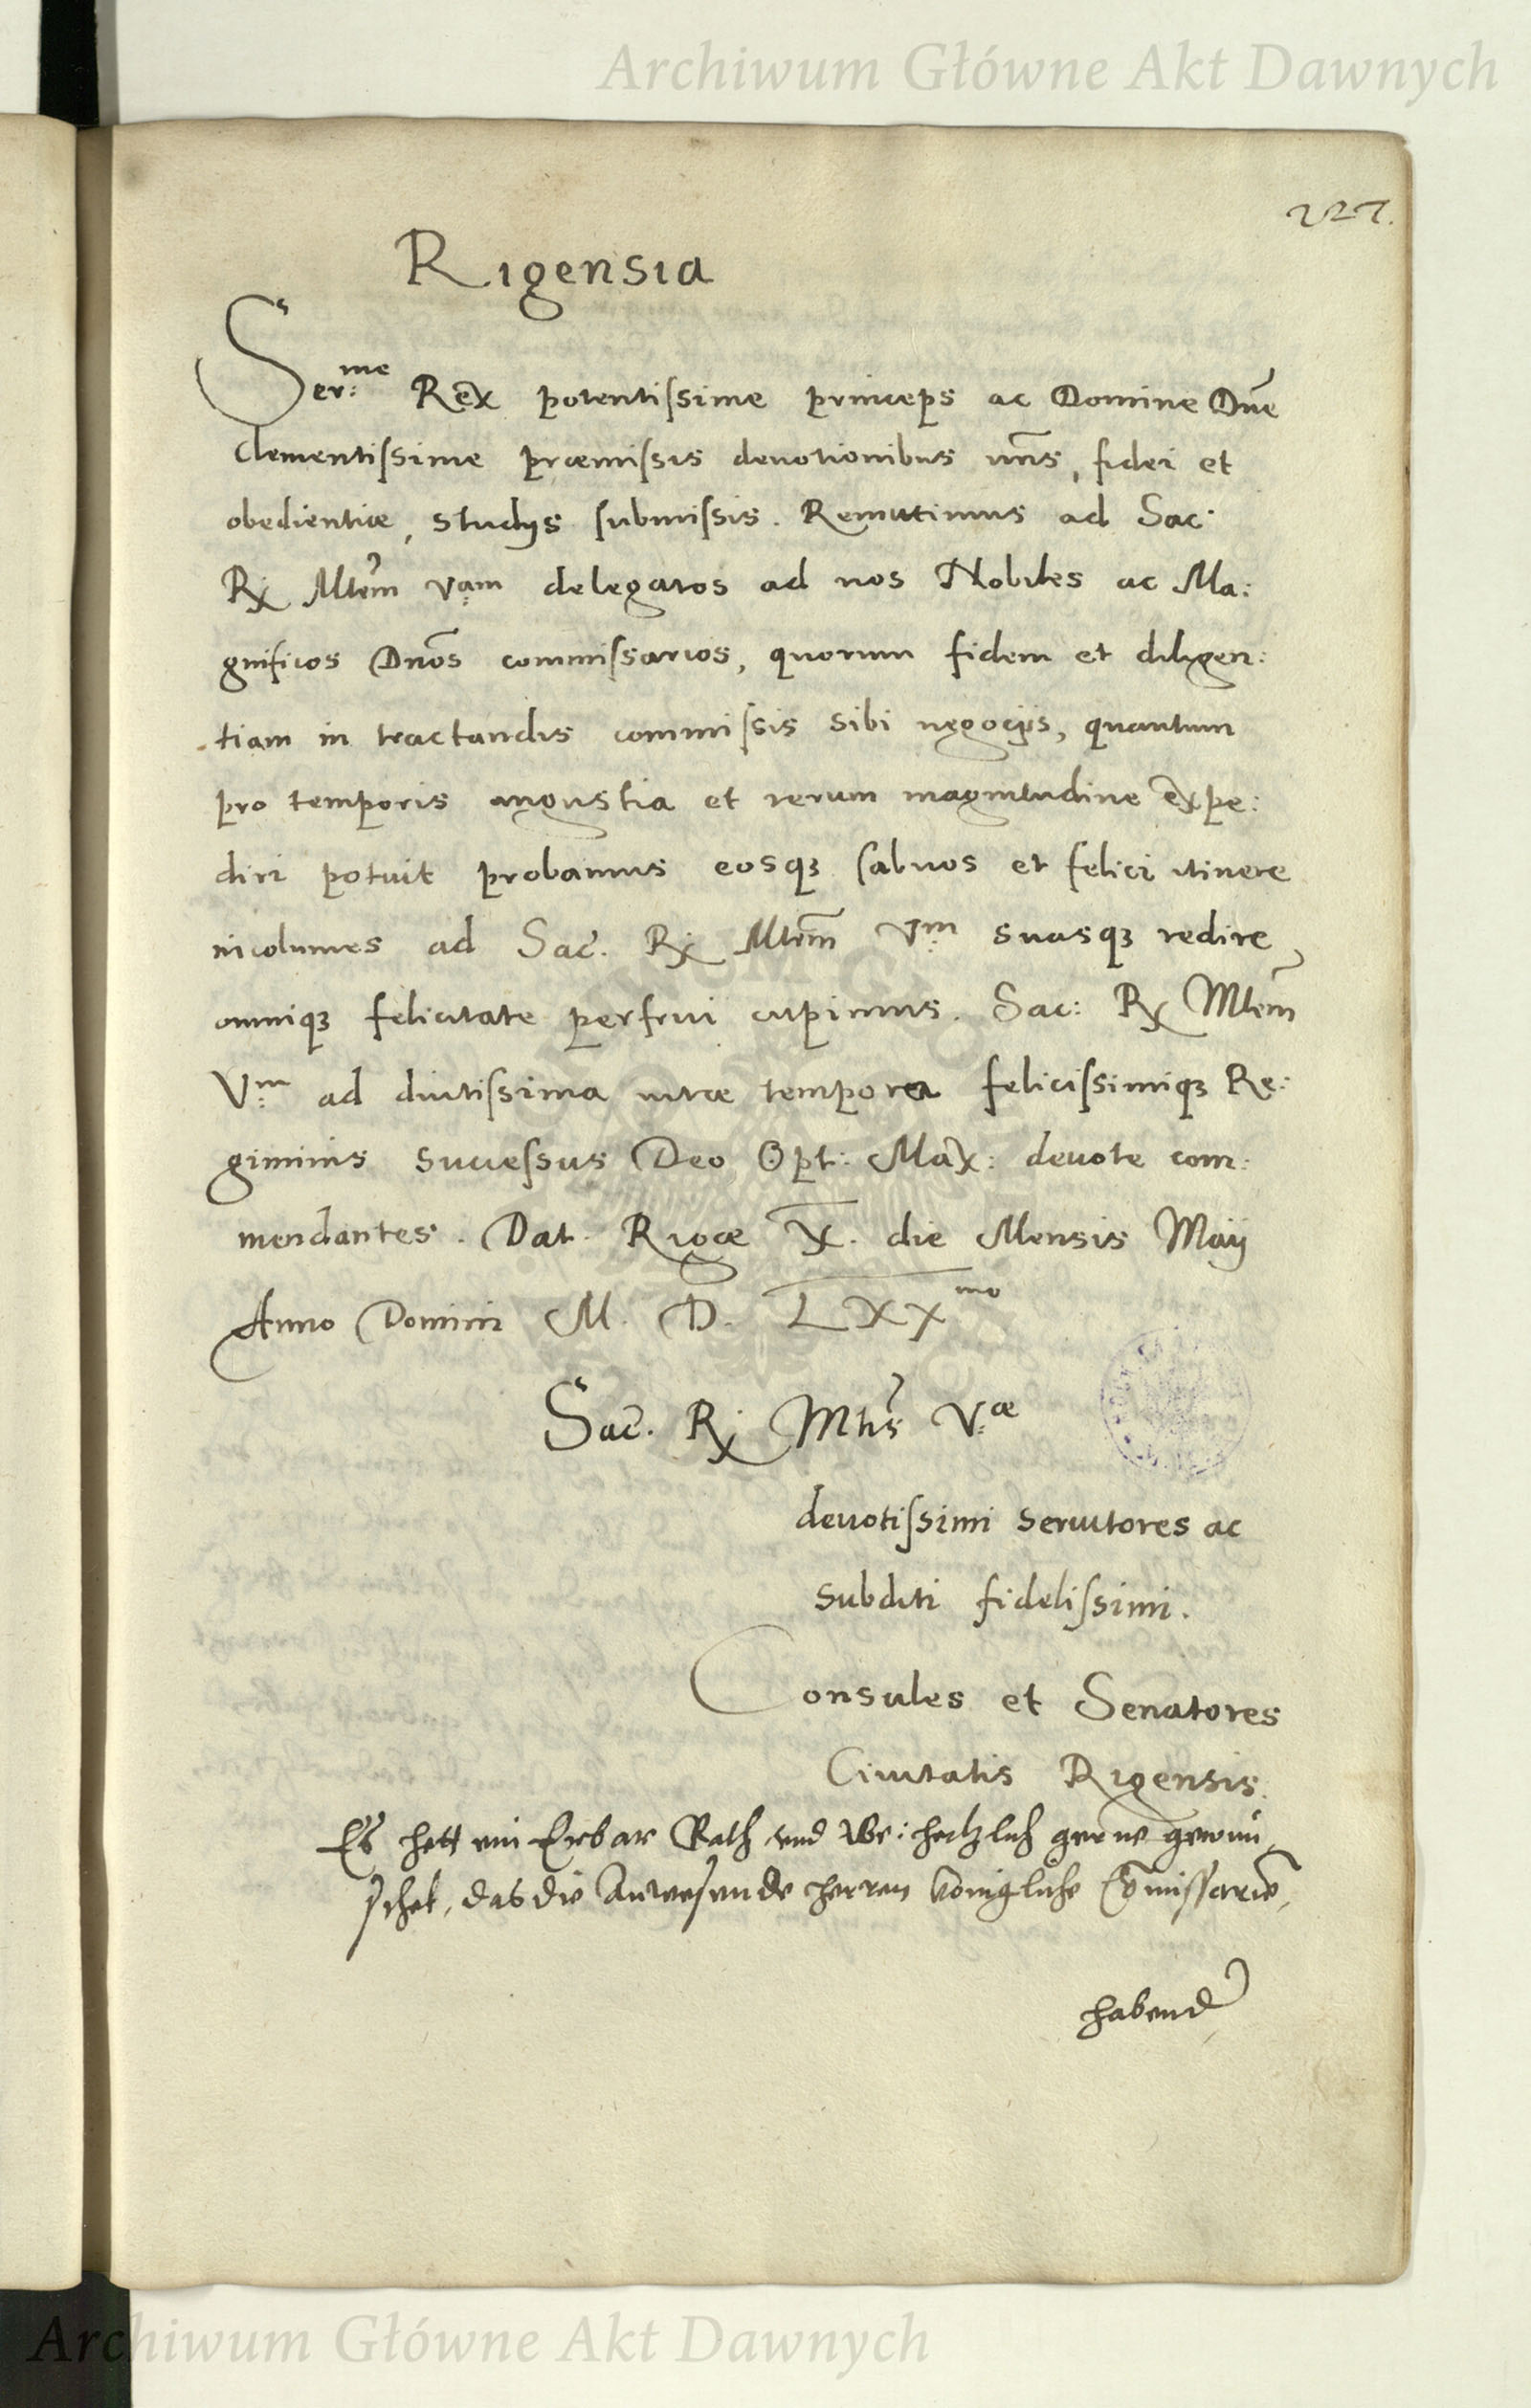 Archiwum Główne Akt Dawnych
227.
Rigensia
Ser:me Rex potentiſsime princeps ac Domine Dn̄e
Clementiſsime præmiſsis deuotionibus nr̄is, fidei et
obedientiæ, studijs ſubmiſsis. Remittimus ad Sac:
Rx Mtem̄ Vam delegatos ad nos Nobiles ac Ma:
gnificos Dnōs commiſsarios, quorum fidem et diligen:
tiam in tractandis commiſsis sibi negocijs, quantum
pro temporis angustia et rerum magnitudine expe:
diri potuit probamus eosqꝫ ſaluos et felici itinere
incolumes ad Sac̄. Rx Mtem̄ Vm suasqꝫ redire,
omniqꝫ felicitate perfrui cupimus. Sac: Rx Mtem̄
V:m ad diutiſsima vitæ tempora feliciſsimiqꝫ Re:
giminis succeſsus Deo Opt: Max: deuote com:
mendantes. Dat. Rigæ X. die Mensis Maij
Anno Domini M. D. LXXmo
Sac̄. Rx Mtis̄ V:æ
deuotiſsimi seruitores ac
subditi fideliſsimi.
Consules et Senatores
Ciuitatis Rigensis.
Es hett ein Erbar Rath vnd We: hertzlich gerne gewun
schet, das die Anwesende herren königliche Com̄issarien,
habend
Archiwum Główne Akt Dawnych